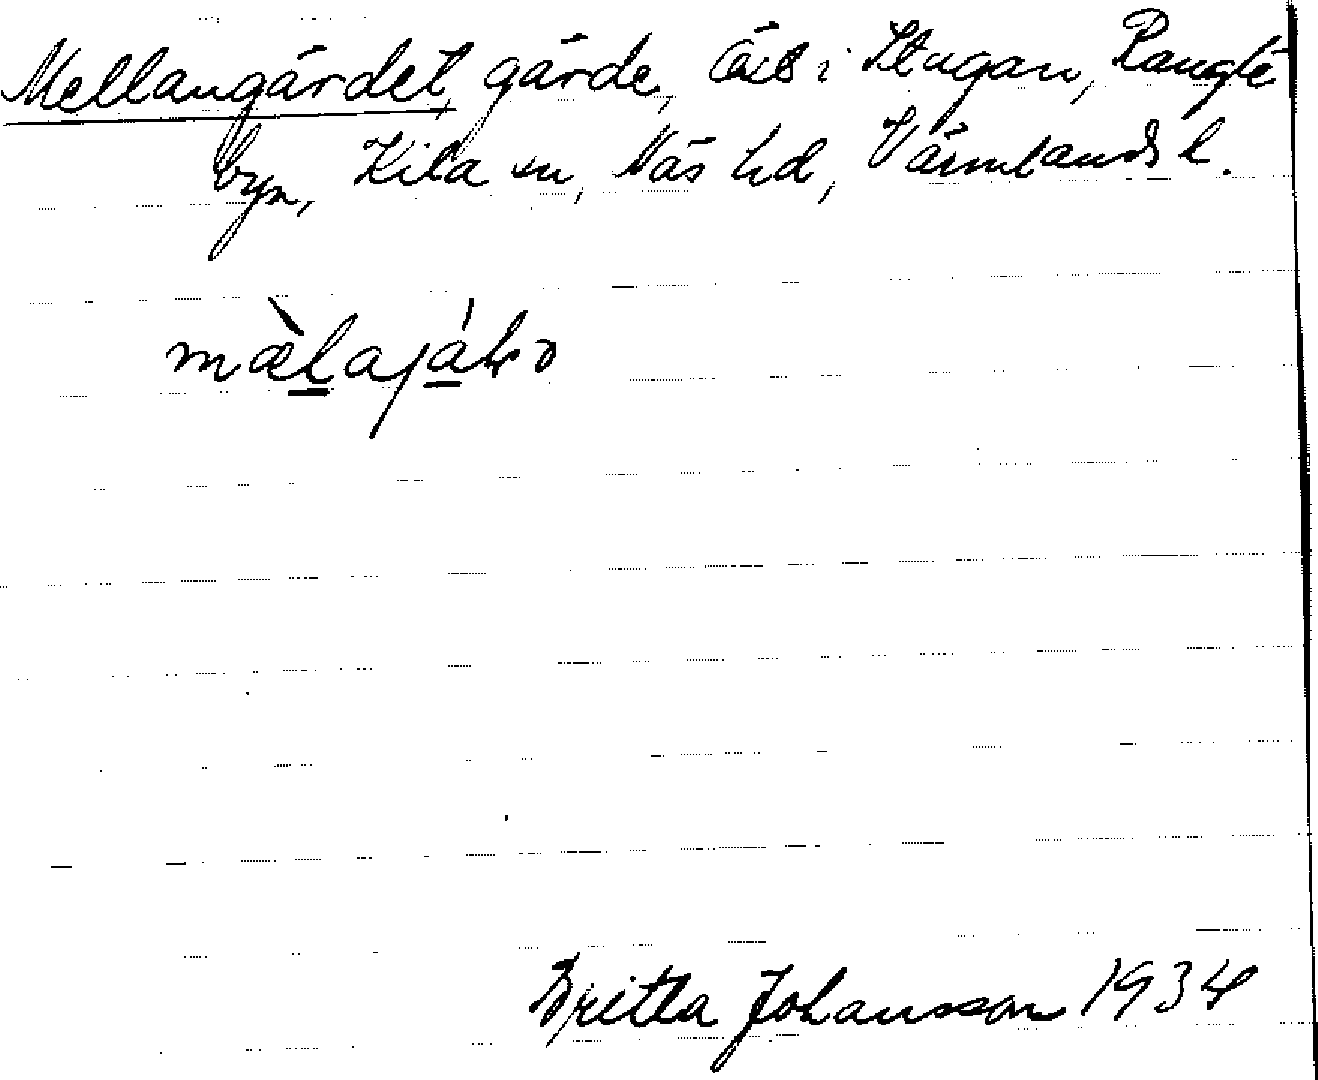 Mellangärdet, gärde, Öst i Stugan, Rangle
byn, Kila sn, Näs hd, Värmlands l.
mæ̀lajáḷə
Britta Johansson 1934